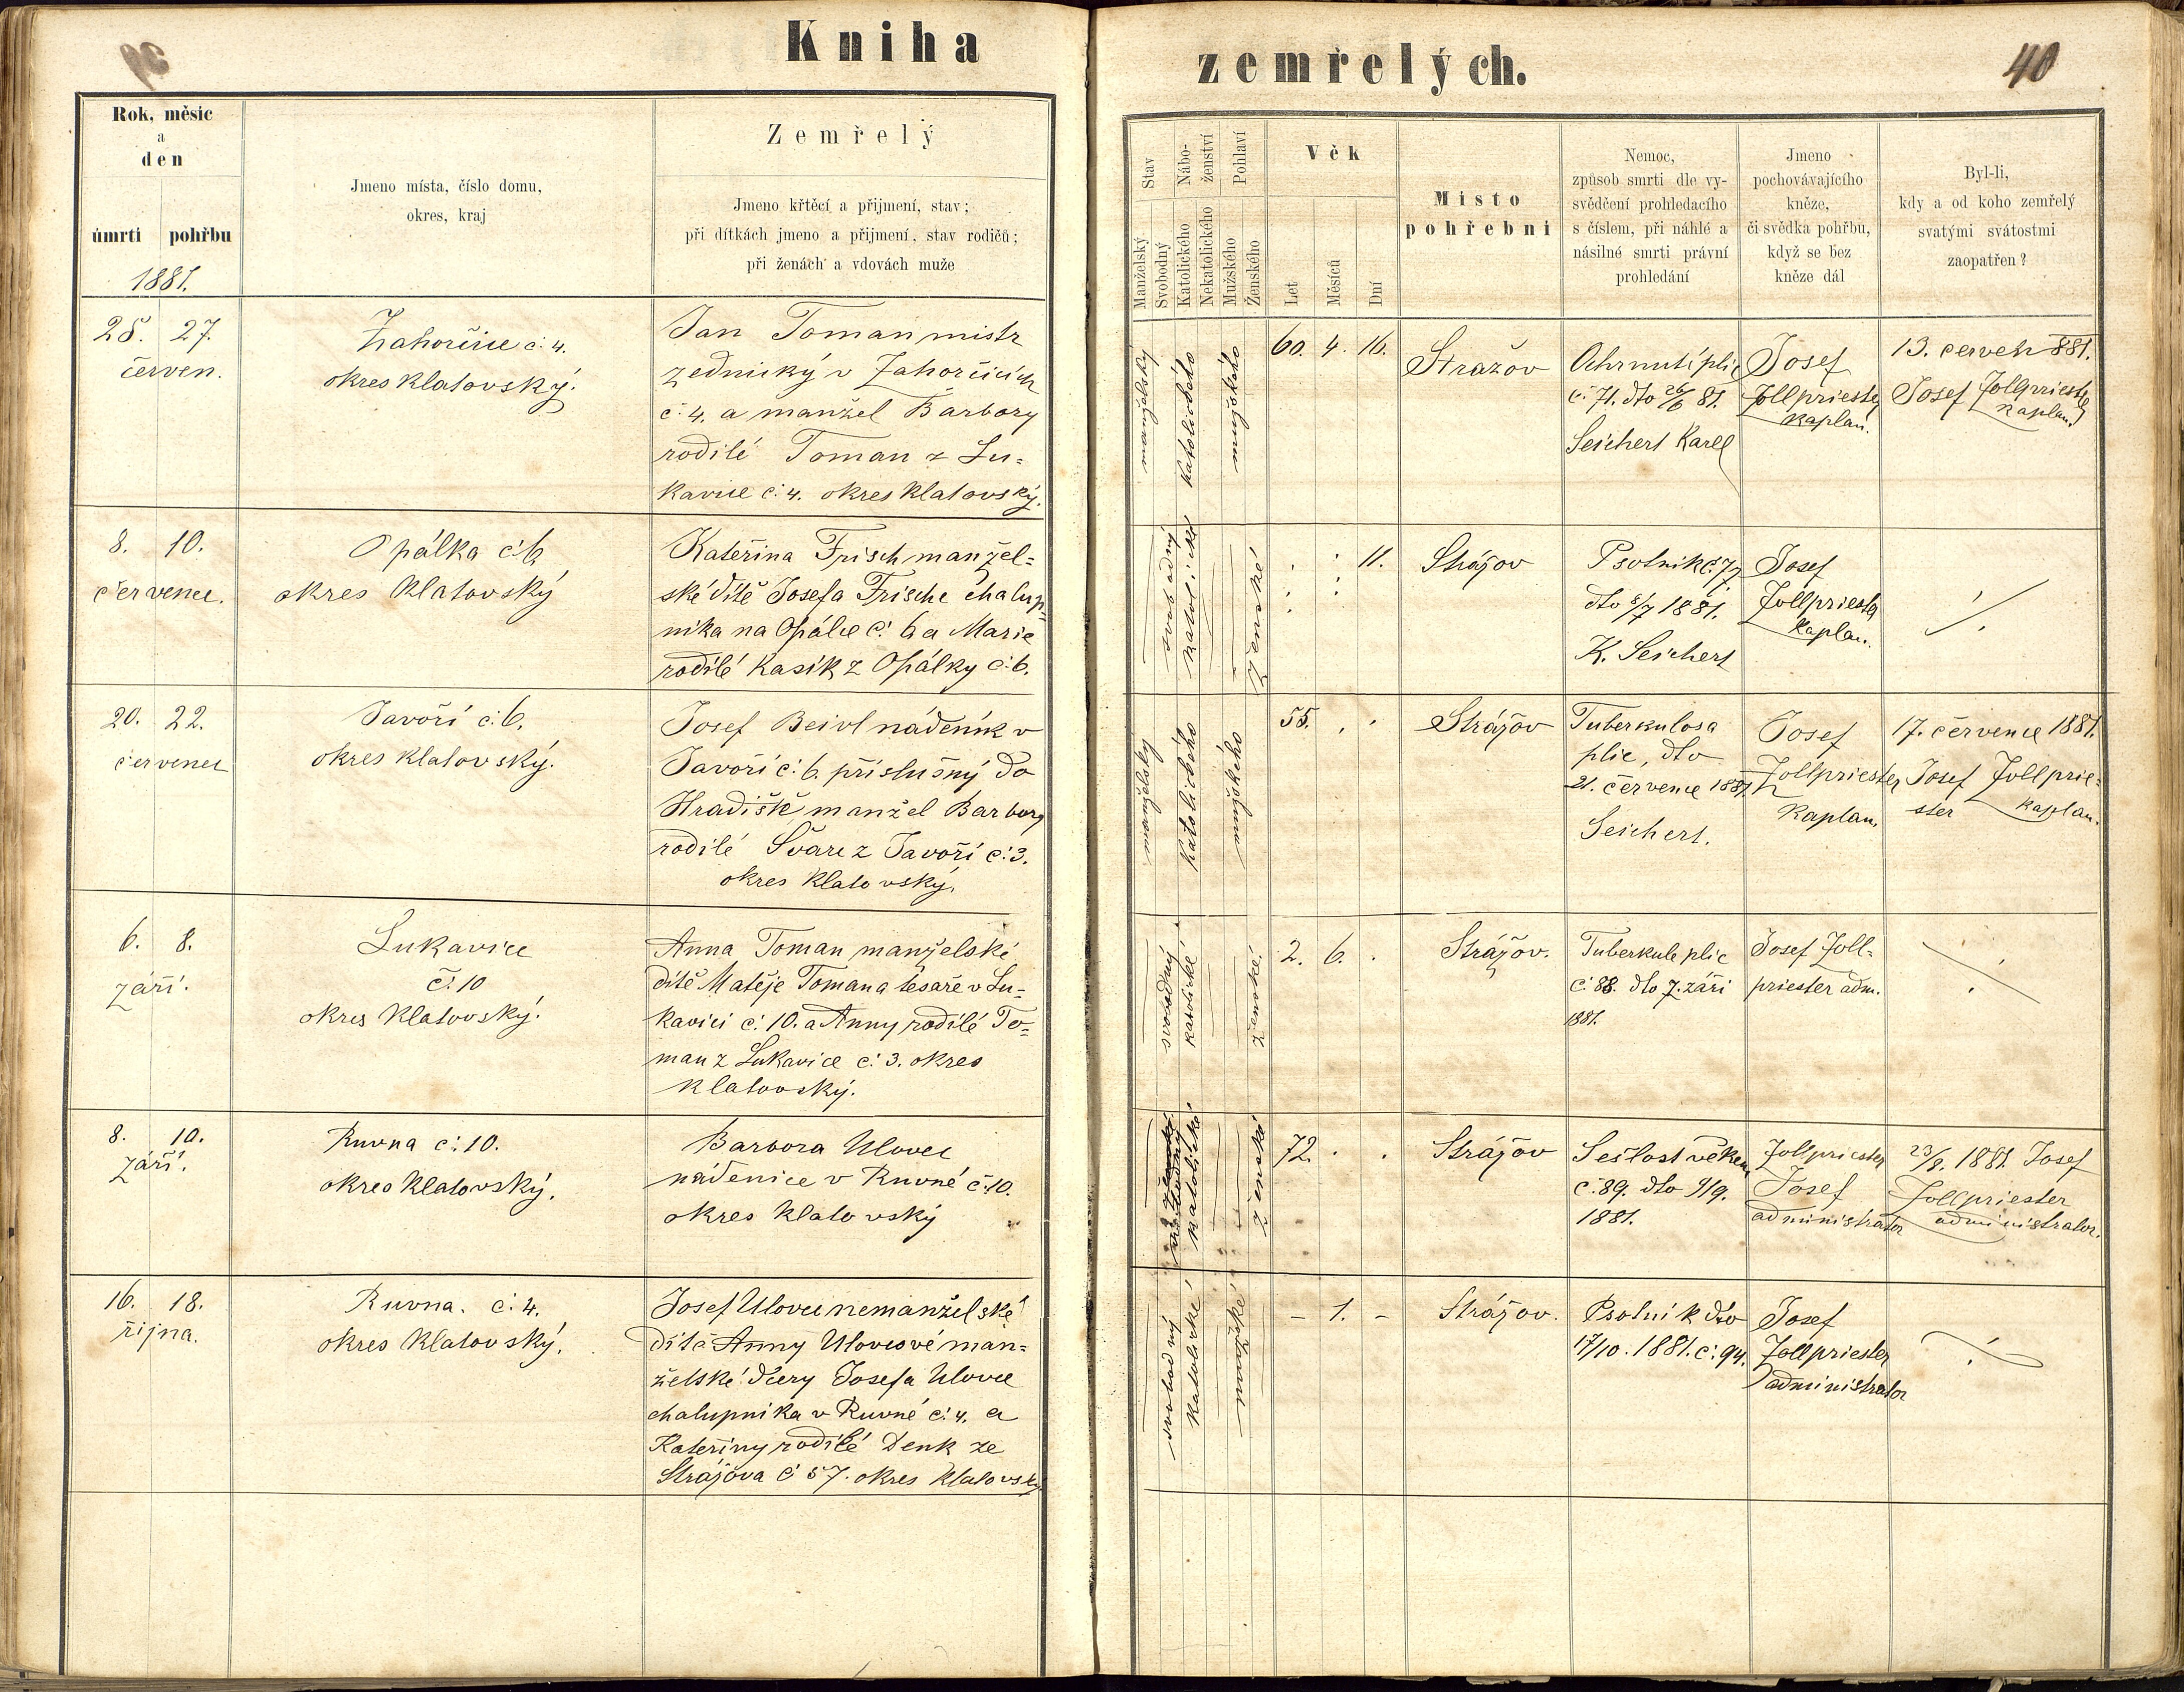 Kniha
zemřelých.
40
Rok, měsíc
a
den
úmrtí pohřbu
1881.
Jmeno místa, číslo domu,
okres, kraj
Zemřelý
Jmeno křtěcí a přijmení, stav;
při dítkách jmeno a přijmení, stav rodičů;
při ženách a vdovách muže
Stav
Manželský
Svobodný
Nábo-
ženství
Katolického
Nekatolického
Pohlaví
Mužského
Ženského
Věk
Let
Měsíců
Dní
Místo
pohřební
Nemoc,
způsob smrti dle vy-
svědčení prohledacího
s číslem, při náhlé a
násilné smrti právní
prohledání
Jmeno
pochovávajícího
kněze,
či svědka pohřbu,
když se bez
kněze dál
Byl-li,
kdy a od koho zemřelý
svatými svátostmi
zaopatřen?
25. 27.
červen.
Zahorčice č. 4.
okres Klatovský.
Jan Toman mistr
zednický v Zahorčicích
č. 4. a manžel Barbory
rodilé Toman z Lu-
kavice č. 4. okres Klatovský.
manželský
katolického
mužského
60. 4. 16.
Stražov
Ochrnutí plic
č. 71. dto 26/6 81.
Seichert Karel
Josef
Zollpriester
Kaplan.
13. červen 881.
Josef Zollpriester
Kaplan
8. 10.
července.
Opálka č. 6
okres Klatovský
Kateřina Frisch manžel-
ské dítě Josefa Frische chalup-
níka na Opálce č. 6 a Marie
rodilé Kasík z Opálky č. 6.
svobodný
ženské
11.
Strážov
Psotník č. 77
dto 8/7 1881.
K. Seichert
Josef
Zollpriester
Kaplan.
20. 22.
červenec
Javoří č. 6.
okres Klatovský.
Josef Beivl nádeník v
Javoří č. 6. příslušný do
Hradiště, manžel Barbory
rodilé Švarc z Javoří č. 3.
okres Klatovský.
manželský
katolického
mužského
55.
Strážov
Tuberkulosa
plic, dto
21. července 1881.
Seichert.
Josef
Zollpriester
Kaplan.
17. července 1881.
Josef Zollprie-
ster Kaplan.
6. 8.
září.
Lukavice
č. 10
okres Klatovský.
Anna Toman manželské
dítě Matěje Tomana tesaře v Lu-
kavici č. 10. a Anny rodilé To-
man z Lukavice č. 3. okres
Klatovský.
svobodný
katolické
ženské.
2. 6.
Strážov.
Tuberkule plic
č. 88. dto 7. září
1881.
Josef Zoll-
priester adm.
8. 10.
září.
Ruvna č. 10.
okres Klatovský.
Barbora Ulovec
nádenice v Ruvné č. 10.
okres Klatovský
katolické
ženské
72.
Strážov
Sešlost věkem
č. 89. dto 9/9.
1881.
Zollpriester
Josef
administrator
23/8. 1881. Josef
Zollpriester
administrator.
16. 18.
října.
Ruvna. č. 4.
okres Klatovský.
Josef Ulovec nemanželské
dítě Anny Ulovcové man-
želské dcery Josefa Ulovce
chalupníka v Ruvné č. 4. a
Kateřiny rodilé Denk ze
Strážova č 57. okres Klatovský
svobodný
katolické
mužské
- 1. -
Strážov.
Psotník dto
17/10. 1881. č. 94.
Josef
Zollpriester
administrator